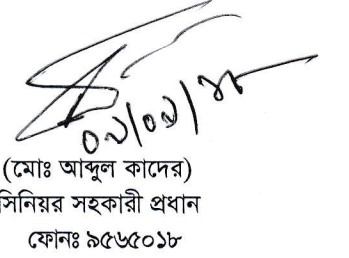 ০৯/০৯/১৮
(মোঃ আব্দুল কাদের)
সিনিয়র সহকারী প্রধান
ফোনঃ ৯৫৬৫০১৮